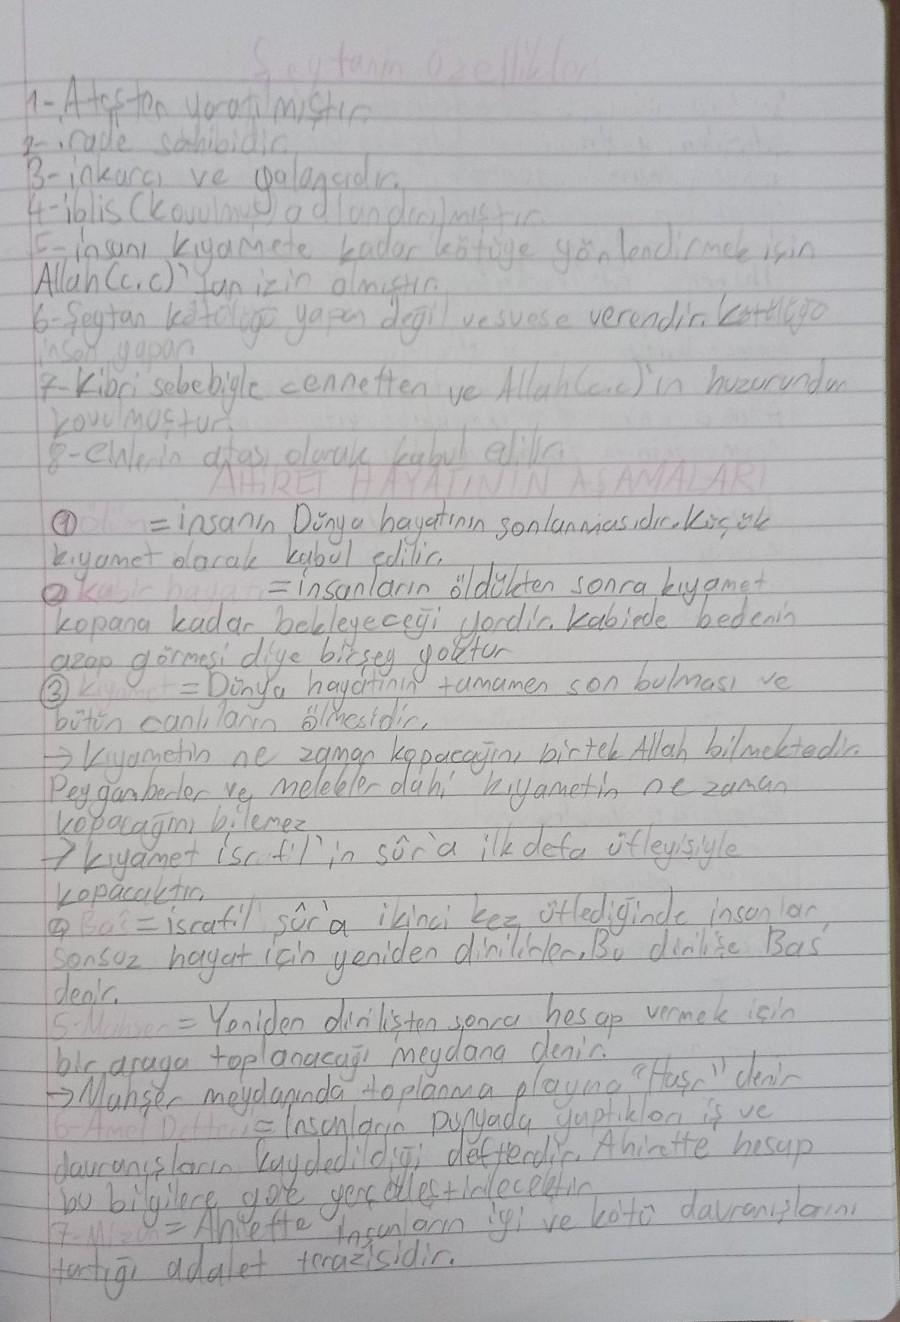 Şeytanın Özellikleri
1-Ateşten yaratılmıştır.
2-irade sahibidir.
3-inkarcı ve yalancıdır.
4-iblis (kovulmuş) adlandırılmıştır.
5-insanı kıyamete kadar kötüye yönlendirmek için
Allah(c.c)'tan izin almıştır.
6-Şeytan kötülüğü yapan değil vesvese verendir. Kötülüğü
insan yapar.
7-Kibri sebebiyle cennetten ve Allah(c.c)'ın huzurundan
kovulmuştur.
8-cinlerin atası olarak kabul edilir.
AHİRET HAYATININ AŞAMALARI
① Ölüm = insanın Dünya hayatının sonlanmasıdır. Küçük
kıyamet olarak kabul edilir.
② Kabir hayatı = insanların öldükten sonra kıyamet
kopana kadar bekleyeceği yerdir. Kabirde bedenin
azap görmesi diye birşey yoktur
③ Kıyamet = Dünya hayatının tamamen son bulması ve
bütün canlıların ölmesidir.
→ Kıyametin ne zaman kopacağını bir tek Allah bilmektedir.
Peygamberler ve melekler dahi kıyametin ne zaman
kopacağını bilemez
→ Kıyamet israfil'in sûr'a ilk defa üfleyişiyle
kopacaktır.
④ Bas = israfil sûr'a ikinci kez üflediğinde insanlar
sonsuz hayat için yeniden dirilirler. Bu dirilişe Bas
denir.
5-Mahşer = Yeniden dirilişten sonra hesap vermek için
bir araya toplanacağı meydana denir.
→ Mahşer meydanında toplanma olayına "Haşr" denir
6-Amel Defteri = insanların Dünyada yaptıkları iş ve
davranışların kaydedildiği defterdir. Ahirette hesap
bu bilgilere göre gerçekleştirilecektir
7-Mizan = Ahirette insanların iyi ve kötü davranışlarını
tarttığı adalet terazisidir.